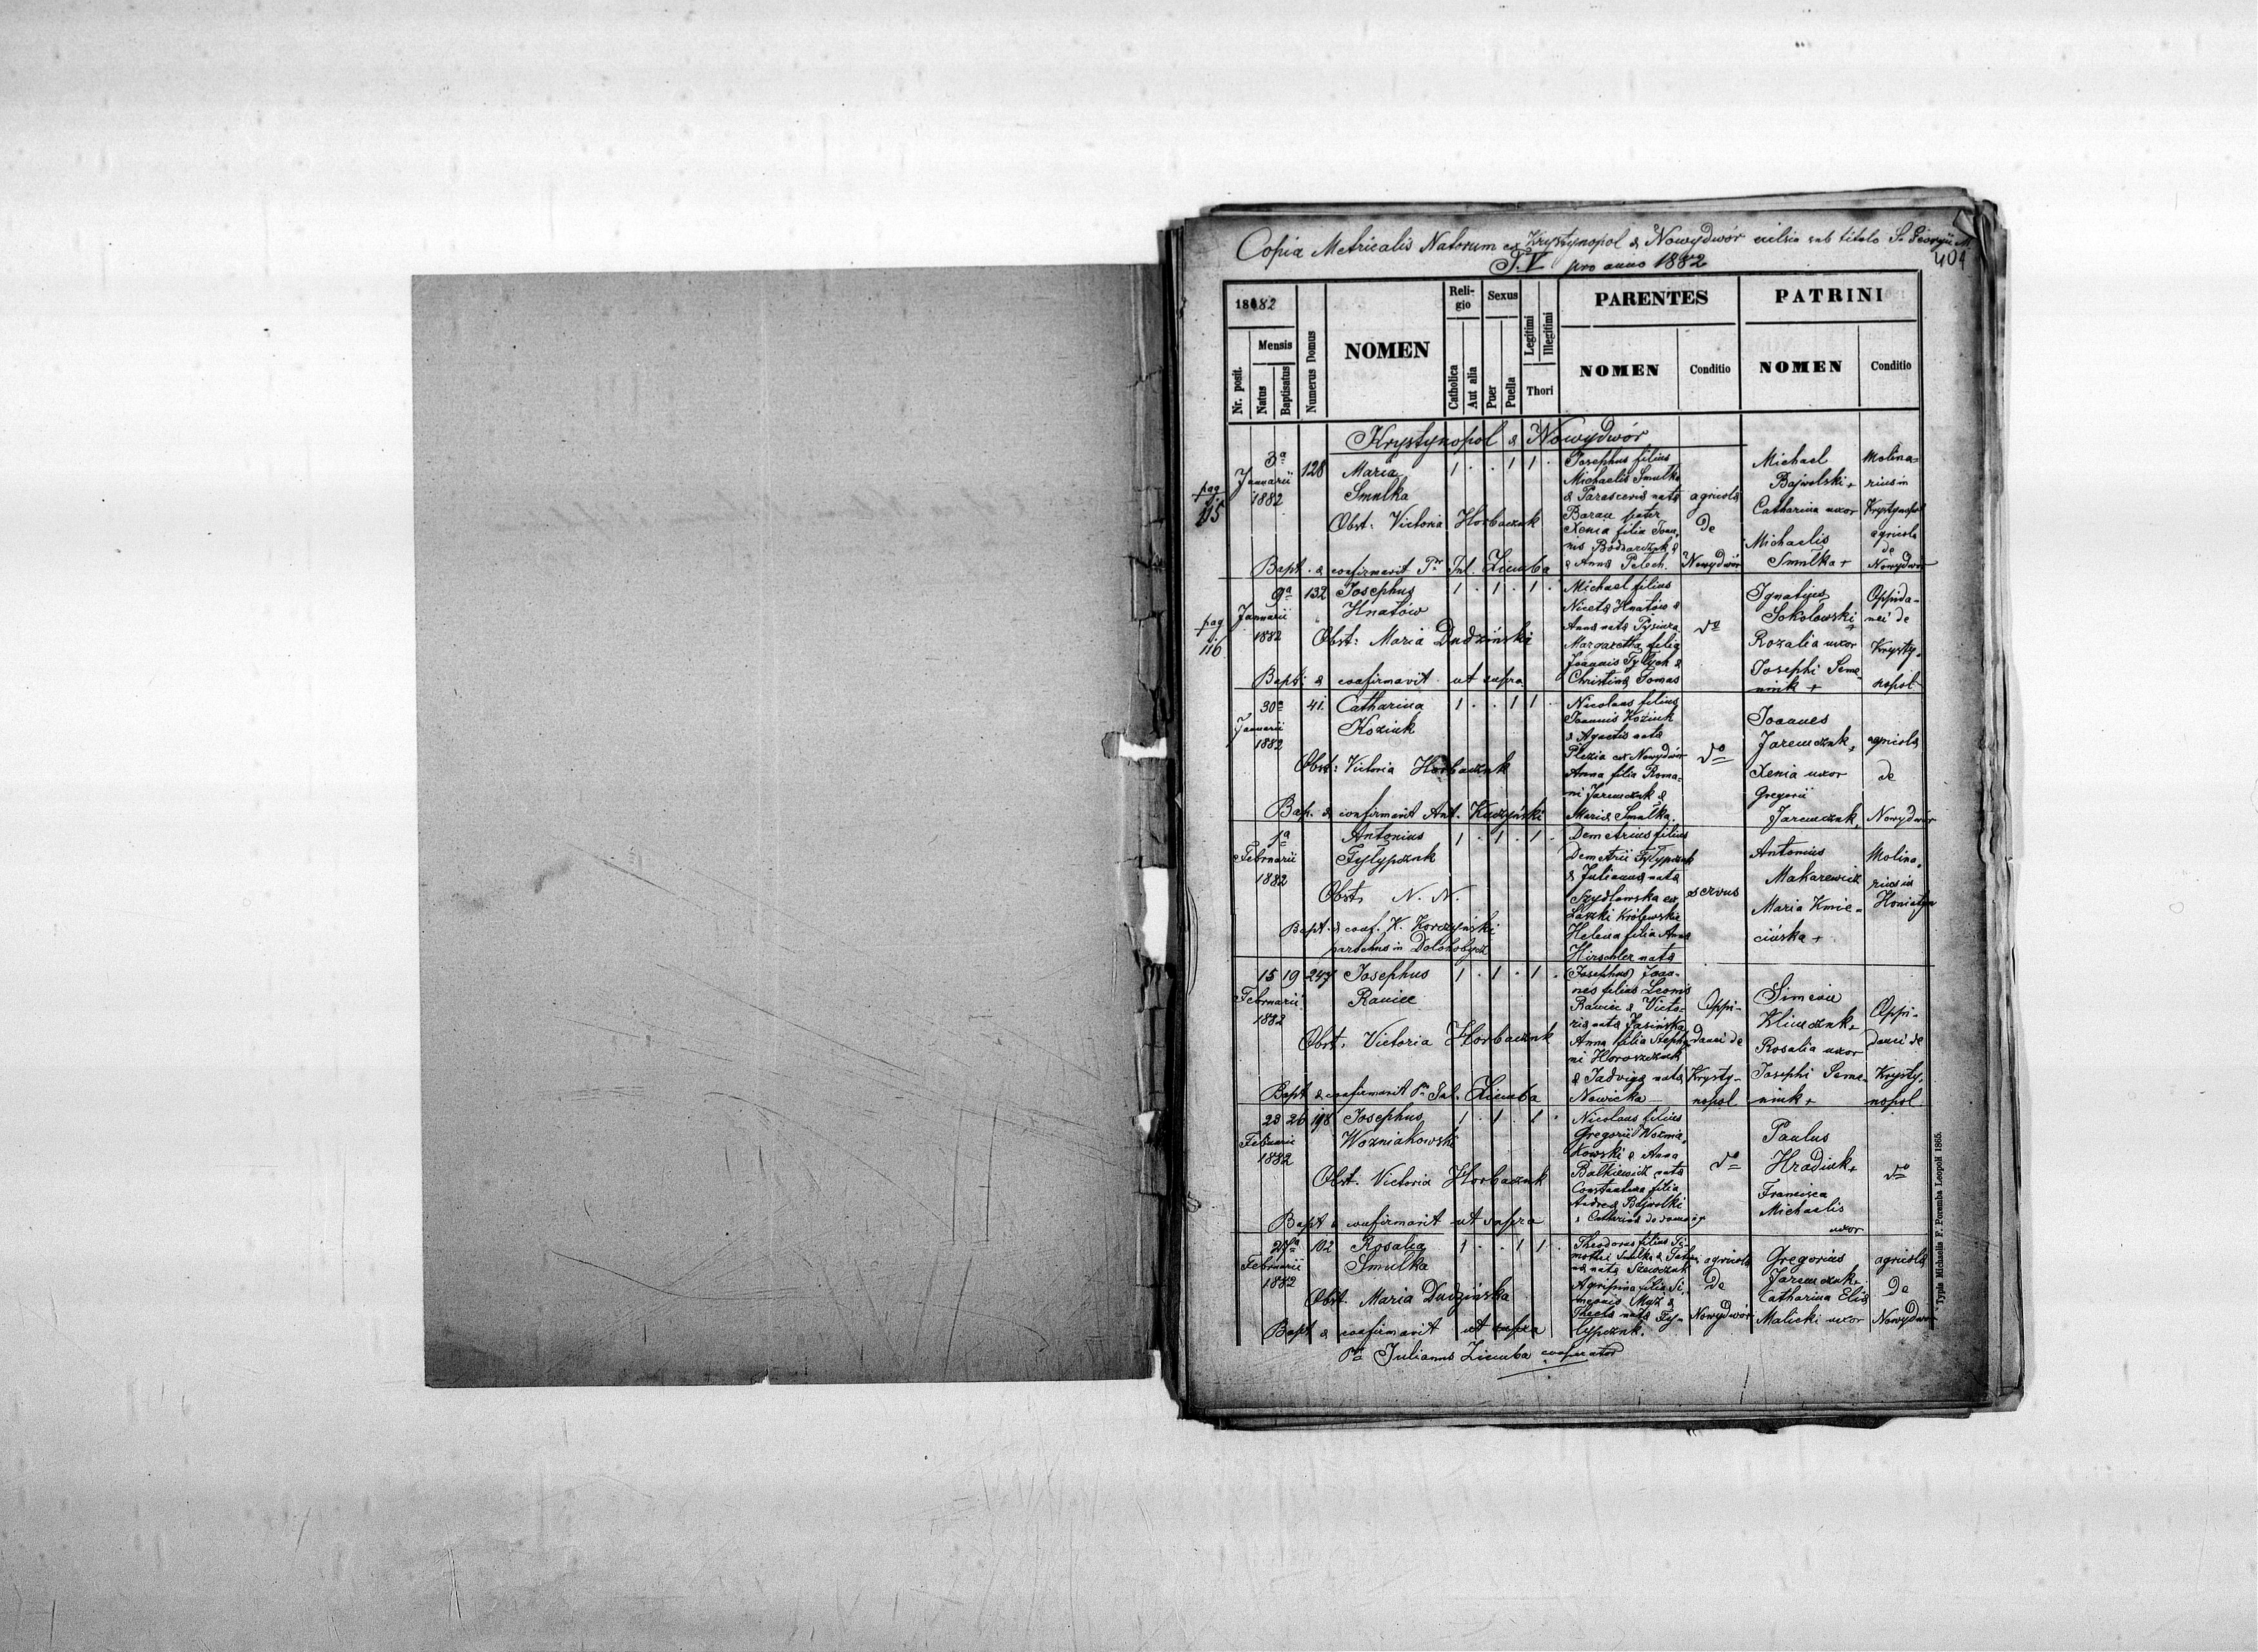 Copia Metricalis Natorum ex Krystynopol & Nowydwór eclsia sub titulo S. Georgii M.
T. V pro anno 1882
404
18682
Nr. posit.
Mensis
Natus
Baptisatus
Numerus Domus
NOMEN
Religio
Catholica
Aut alia
Sexus
Puer
Puella
Legitimi
Illegitimi
Thori
PARENTES
NOMEN
Conditio
PATRINI
NOMEN
Conditio
Krystynopol & Nowydwór
pag
115
3a
Januarii
1882
128
Maria
Smulka
Obst: Victoria Horbacznk
Bapt. & confirmavit Pr Jul. Ziemba
1 . . 1 1 .
Josephus filius
Michaelis Smulka
& Parascevia nata
Baran pater
Xenia filia Joan
nis Bodnarczuk &
& Anna Pelech.
agricola
de
Nowydwór
Michael
Bajwolski +
Catharina uxor
Michaelis
Smulka +
Molina=
rius in
Krystynopol
agricola
de
Nowydwór
pag
116
9a
Januarii
1882
132
Josephus
Hnatów
Obst: Maria Dudziński
Bapt: & confirmavit ut supra
1 . 1 . 1 .
Michael filius
Niceta Hnatów &
Anna nata
Margaretha filia
Joannis Tylych &
Christina Tomas
do
Ignatius
Sokolowski +
Rozalia uxor
Josephi Seme
niuk +
Oppida-
nei de
Krysty-
nopol
30a
Januarii
1882
41
Catharina
Koziuk
Obst: Victoria Horbaczuk
Bap. & confirmavit Ant. Kuczyński
1 . . 1 1 .
Nicolaus filius
Joannis Koziuk
& Agnetis nata
Plezia ex Nowydwór
Anna filia Roma-
ni Jaremczuk &
Maria Smulka.
do
Joannes
Jaremczuk +
Xenia uxor
Gregorii
Jaremczuk
agricola
de
Nowydwór
1a
Februarii
1882
Antonius
Fylypczuk
Obst. N. N.
Bapt. & conf. K. Korczyński
parochus in Dolohobycz
1 . 1 . 1 .
Demetrius filius
Demetrii Fylypczuk
& Julianna nata
Szydlowska ex
Laszki Królewskie
Helena filia Anna
Hirschler nata
servus
Antonius
Makarewicz
Maria Kmie-
cińska +
Molina-
rius in
Honiatyn
15 19
Februarii
1882
247
Josephus
Rawiec
Obst. Victoria Horbaczuk
Bapt & confirmavit Pr Jul. Ziemba
1 . 1 . 1 .
(Josephus) Joan-
nes filius Leonis
Rawiec & Victo-
ria nata Jasińska
Anna filia Stepha
ni Horoszczuk
& Jadviga nata
Nowicka
Oppi-
danei de
Krysty-
nopol
Simeon
Klimczuk +
Rosalia uxor
Josephi Seme-
niuk +
Oppi-
danei de
Krysty-
nopol
23 26
Februarii
1882
198
Josephus
Wozniakowski
Obst. Victoria Horbaczuk
Bapt & confirmavit ut supra
1 . 1 . 1 .
Nicolaus filius
Gregorii Woznia-
kowski & Anna
Balkiewicz nata
Constantina filia
Andrea Bajwolki
& Catharina
do
Paulus
Hradiuk +
Francisca
Michaelis
uxor
do
27a
Februarii
1882
102
Rosalia
Smulka
Obst. Maria Dudzińska
Bapt & confirmavit ut supra
1 . . 1 1 .
Theodorus filius Ti-
mothei Smulka & Tatia-
na nata Szewczuk
Agripina filia Si-
meonis Muz &
Thecla nata Fy-
lypczuk.
agricola
de
Nowydwór
Gregorius
Jaremczuk +
Catharina Elia
Malicki uxor
agricola
de
Nowydwór
Pr Julianus Ziemba cooperator
Typis Michaelis F. Poremba Leopoli 1865.